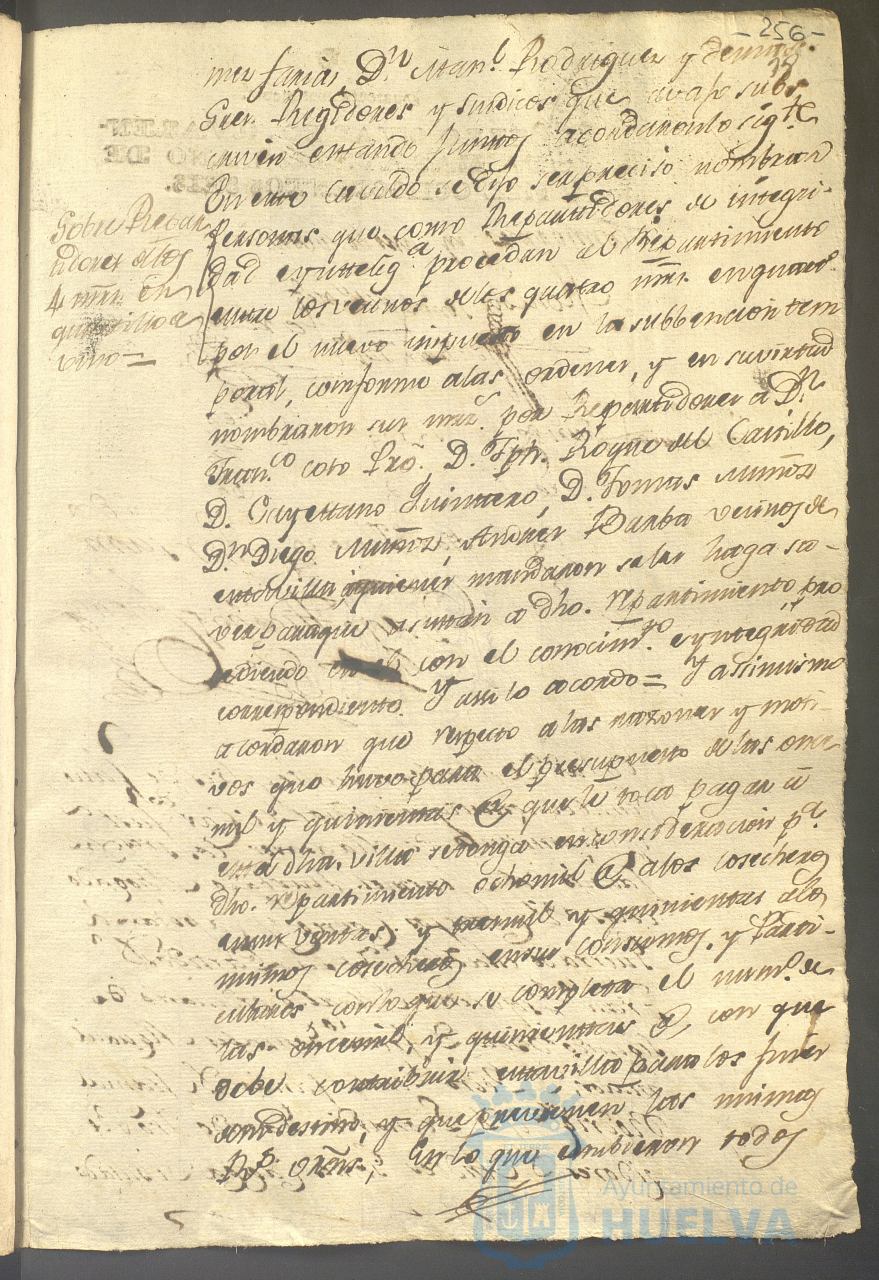 -256-
mez faria, Dn. Manl. Rodriguez y
Grer. Regidores y sindicos que avajo subs
criven estando juntos acordaron lo sigte.
En este Cavildo se dijo ser preciso nombrar
Sobre Repar
tidores de los
4 mrs. en
quartillo de
vino=
Personas que como Repartidores de integri-
dad e yntteliga. procedan al Repartimiento
entre los vecinos de los quatro mrs. en quarto.
por el nuevo impuesto en la subbencion tem
poral, conforme a las ordenes, y en su virtud
nombraron sus mrds. por Repartidores a Dn.
Franco. coto Pro. D. Jph. Roqno del Castillo,
D. Cayettano Quintero, D. Tomas Muñoz
Dn. Diego Muñoz, Andres Barba vecinos de
esta villa, aquienes mandaron se les haga sa-
ver para que asistan a dho. repartimiento pro
cediendo en el con el conocimto. e yntegridad
correspondiente. Y assi lo acordo= Y assimismo
acordaron que respecto a las razones y moti-
vos que huvo para el presupuesto de las once
mil y quinientos que le toco pagar a
esta dha. villa se tenga en consideracion pa.
dho. repartimiento ocho mil a los cosecheros
en sus ventas, y tres mil y quinientas a los
mismos cosecheros en sus consumos, y Parti-
culares con lo que se completa el numo. de
las once mil, y quinienttas con que
debe contribuir esta villa para los fines
de su destino, y que previenen las mismas
Rs. ordns. En lo que combinieron todos
Ayuntamiento de
HUELVA